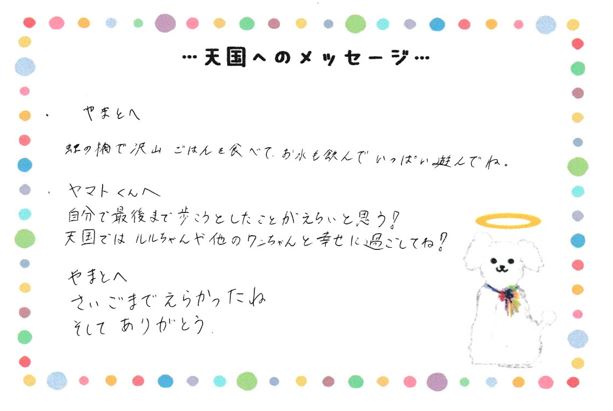 …天国へのメッセージ…
・ やまとへ
虹の橋で沢山 ごはんを食べて、お水も飲んで いっぱい遊んでね。
・ ヤマトくんへ
自分で最後まで歩こうとしたことがえらいと思う!
天国では ルルちゃんや他のワンちゃんと幸せに過ごしてね?
やまとへ
さいごまで えらかったね
そして ありがとう.